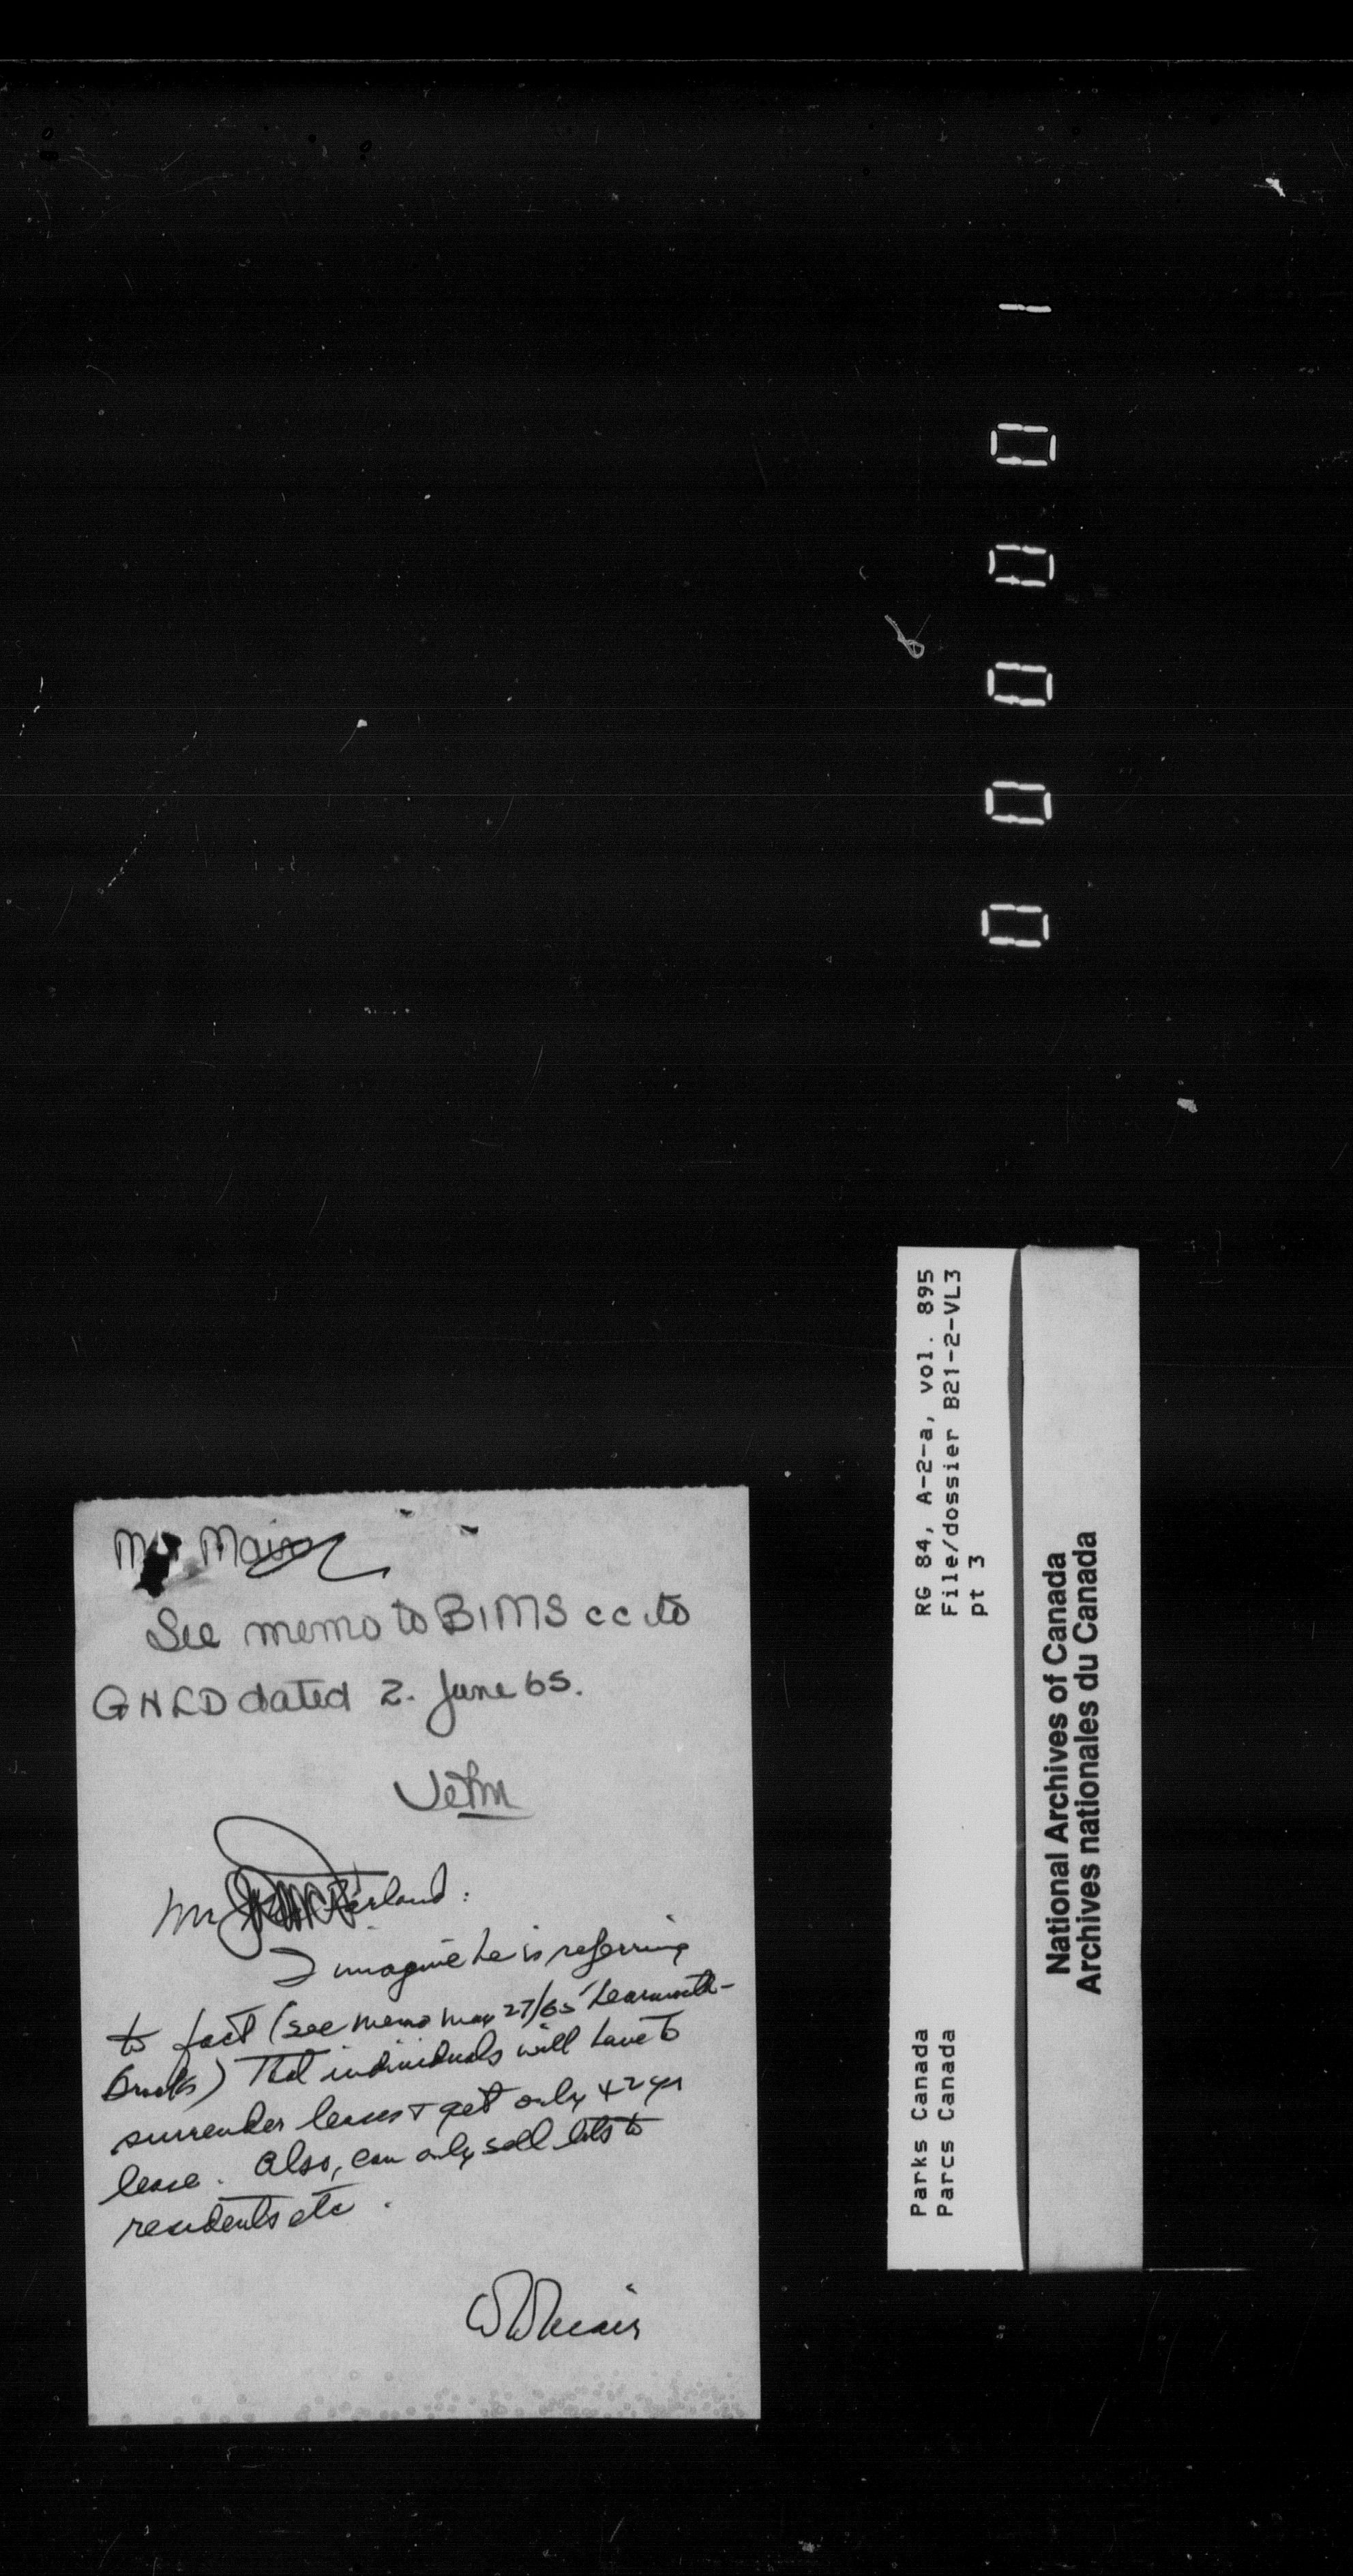 Mr Mair
See memo to BIMS cc to
GHLD dated 2. June 65.
Mr
I imagine he is referring
to fact (see memo May 27/65 Learmonth-
Brooks) that individuals will have to
surrender leases & get only 42 yr
lease. Also, can only sell lots to
residents etc.
WWMair
RG 84, A-2-a, vol. 895
File/dossier B21-2-VL3
pt 3
Parks Canada
Parcs Canada
National Archives of Canada
Archives nationales du Canada
000001